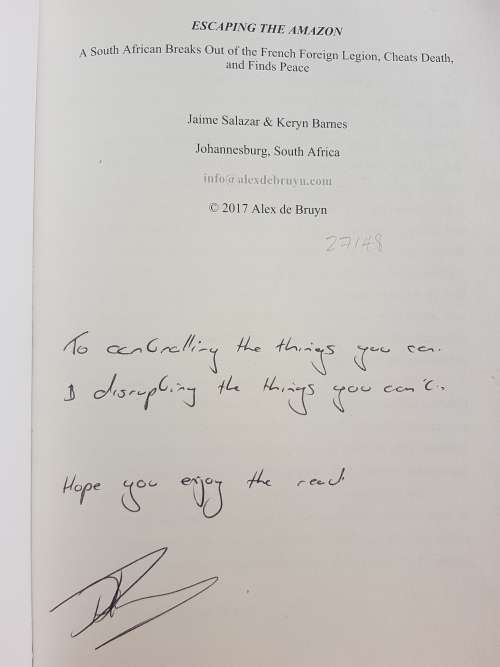 ESCAPING THE AMAZON
A South African Breaks Out of the French Foreign Legion, Cheats Death,
and Finds Peace
Jaime Salazar & Keryn Barnes
Johannesburg, South Africa
info@alexdebruyn.com
© 2017 Alex de Bruyn
27148
To controlling the things you can.
& disrupting the things you can't.
Hope you enjoy the read